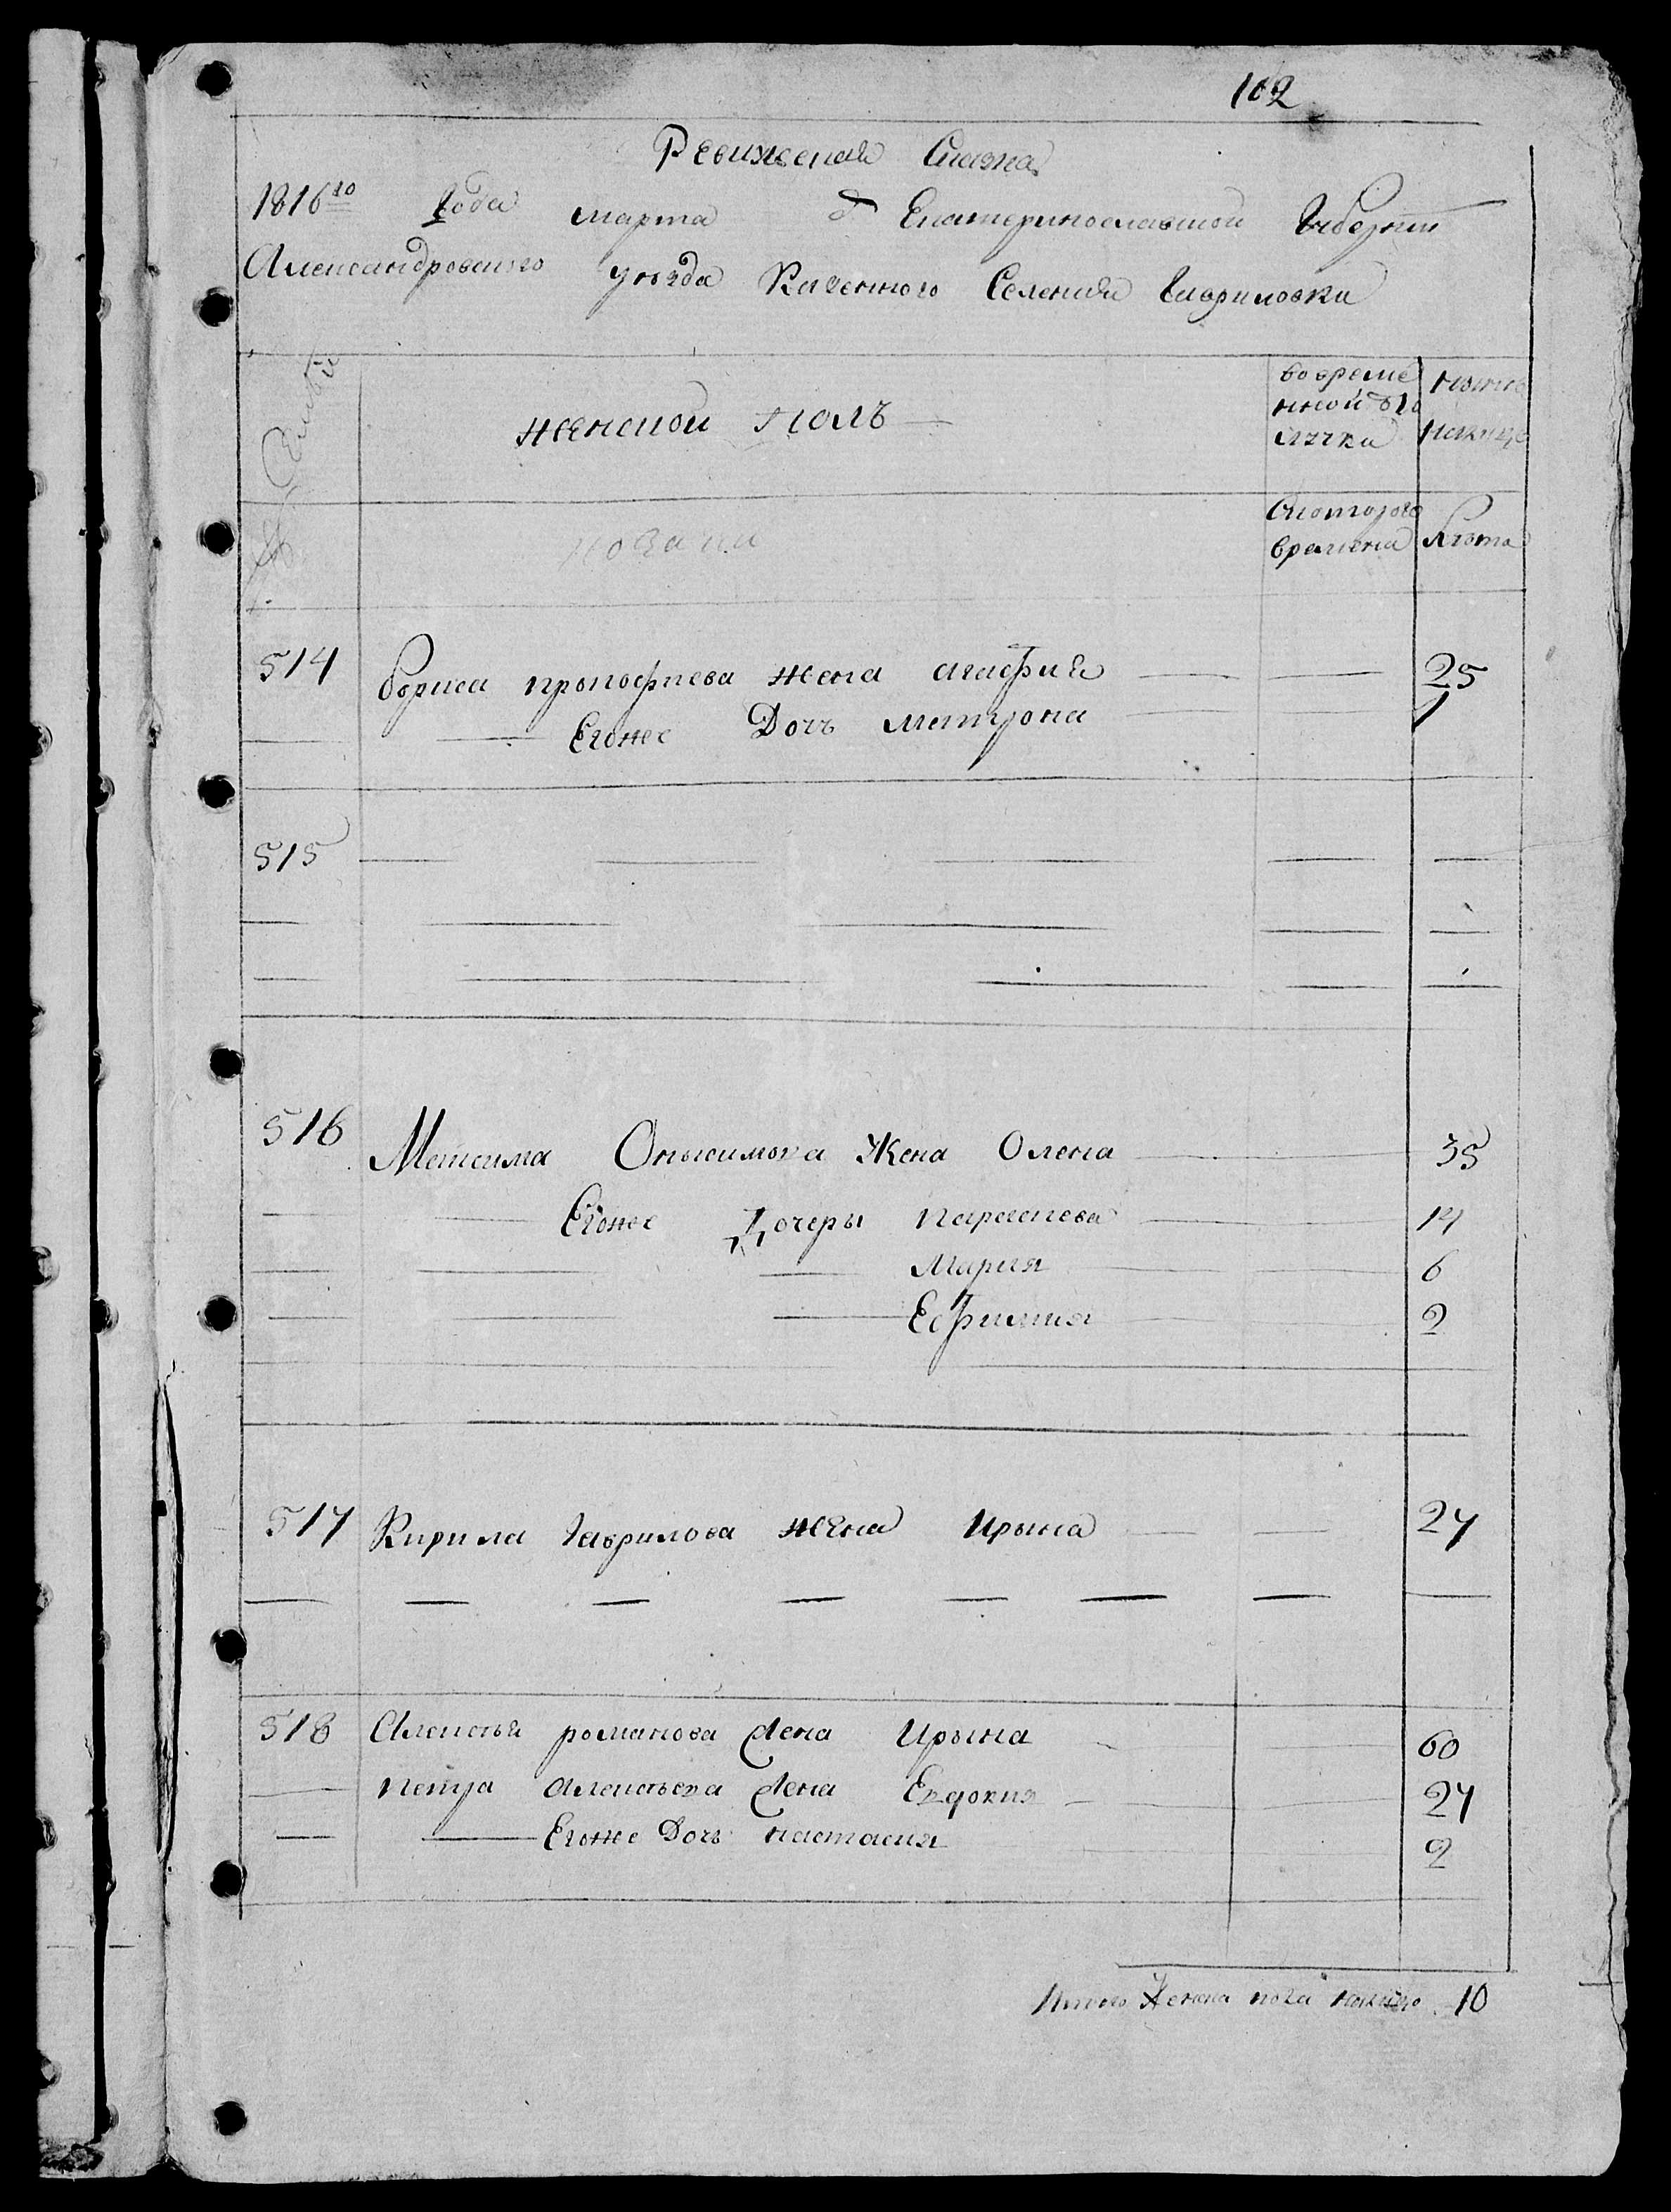 102
Ревижская Сказка
1816го Года марта д Екатеринославской Губернии
Александровского уезда Казенного Селения Гавриловки
Семьи
женской полъ
во време
нной отъ
лучки
ныне
на лицо
козаки
С которого
времени
Лѣта
514 Бориса прокофиева жена агафия 25
Егоже Дочъ матрона 1
515
516 Максима Онысимова Жена Олена 35
Егоже Дочеры параскева 14
Мария 6
Ефимия 2
517 Кирила Гаврилова жена Ирына 27
518 Алексѣя романова Жена Ирына 60
петра алексѣева Жена Евдокия 24
Егоже Дочь настасия 2
Итого Женска пола налицо 10